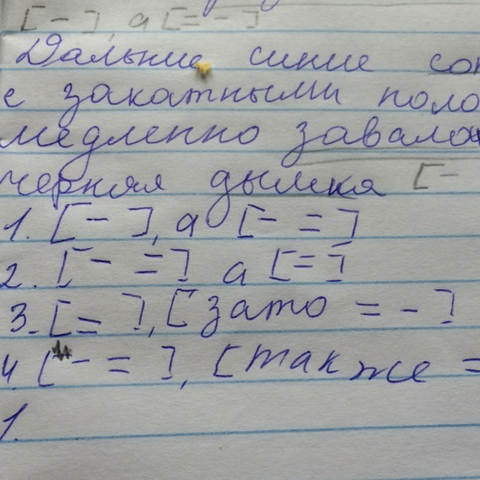 [-], а [=-]
Дальние синие соп
с закатными поло
медленно завалак
черная дымка [-
1. [- ], а [- =]
2. [- =] а [=]
3. [=], [зато = -]
4. [- = ], [так же =
1.